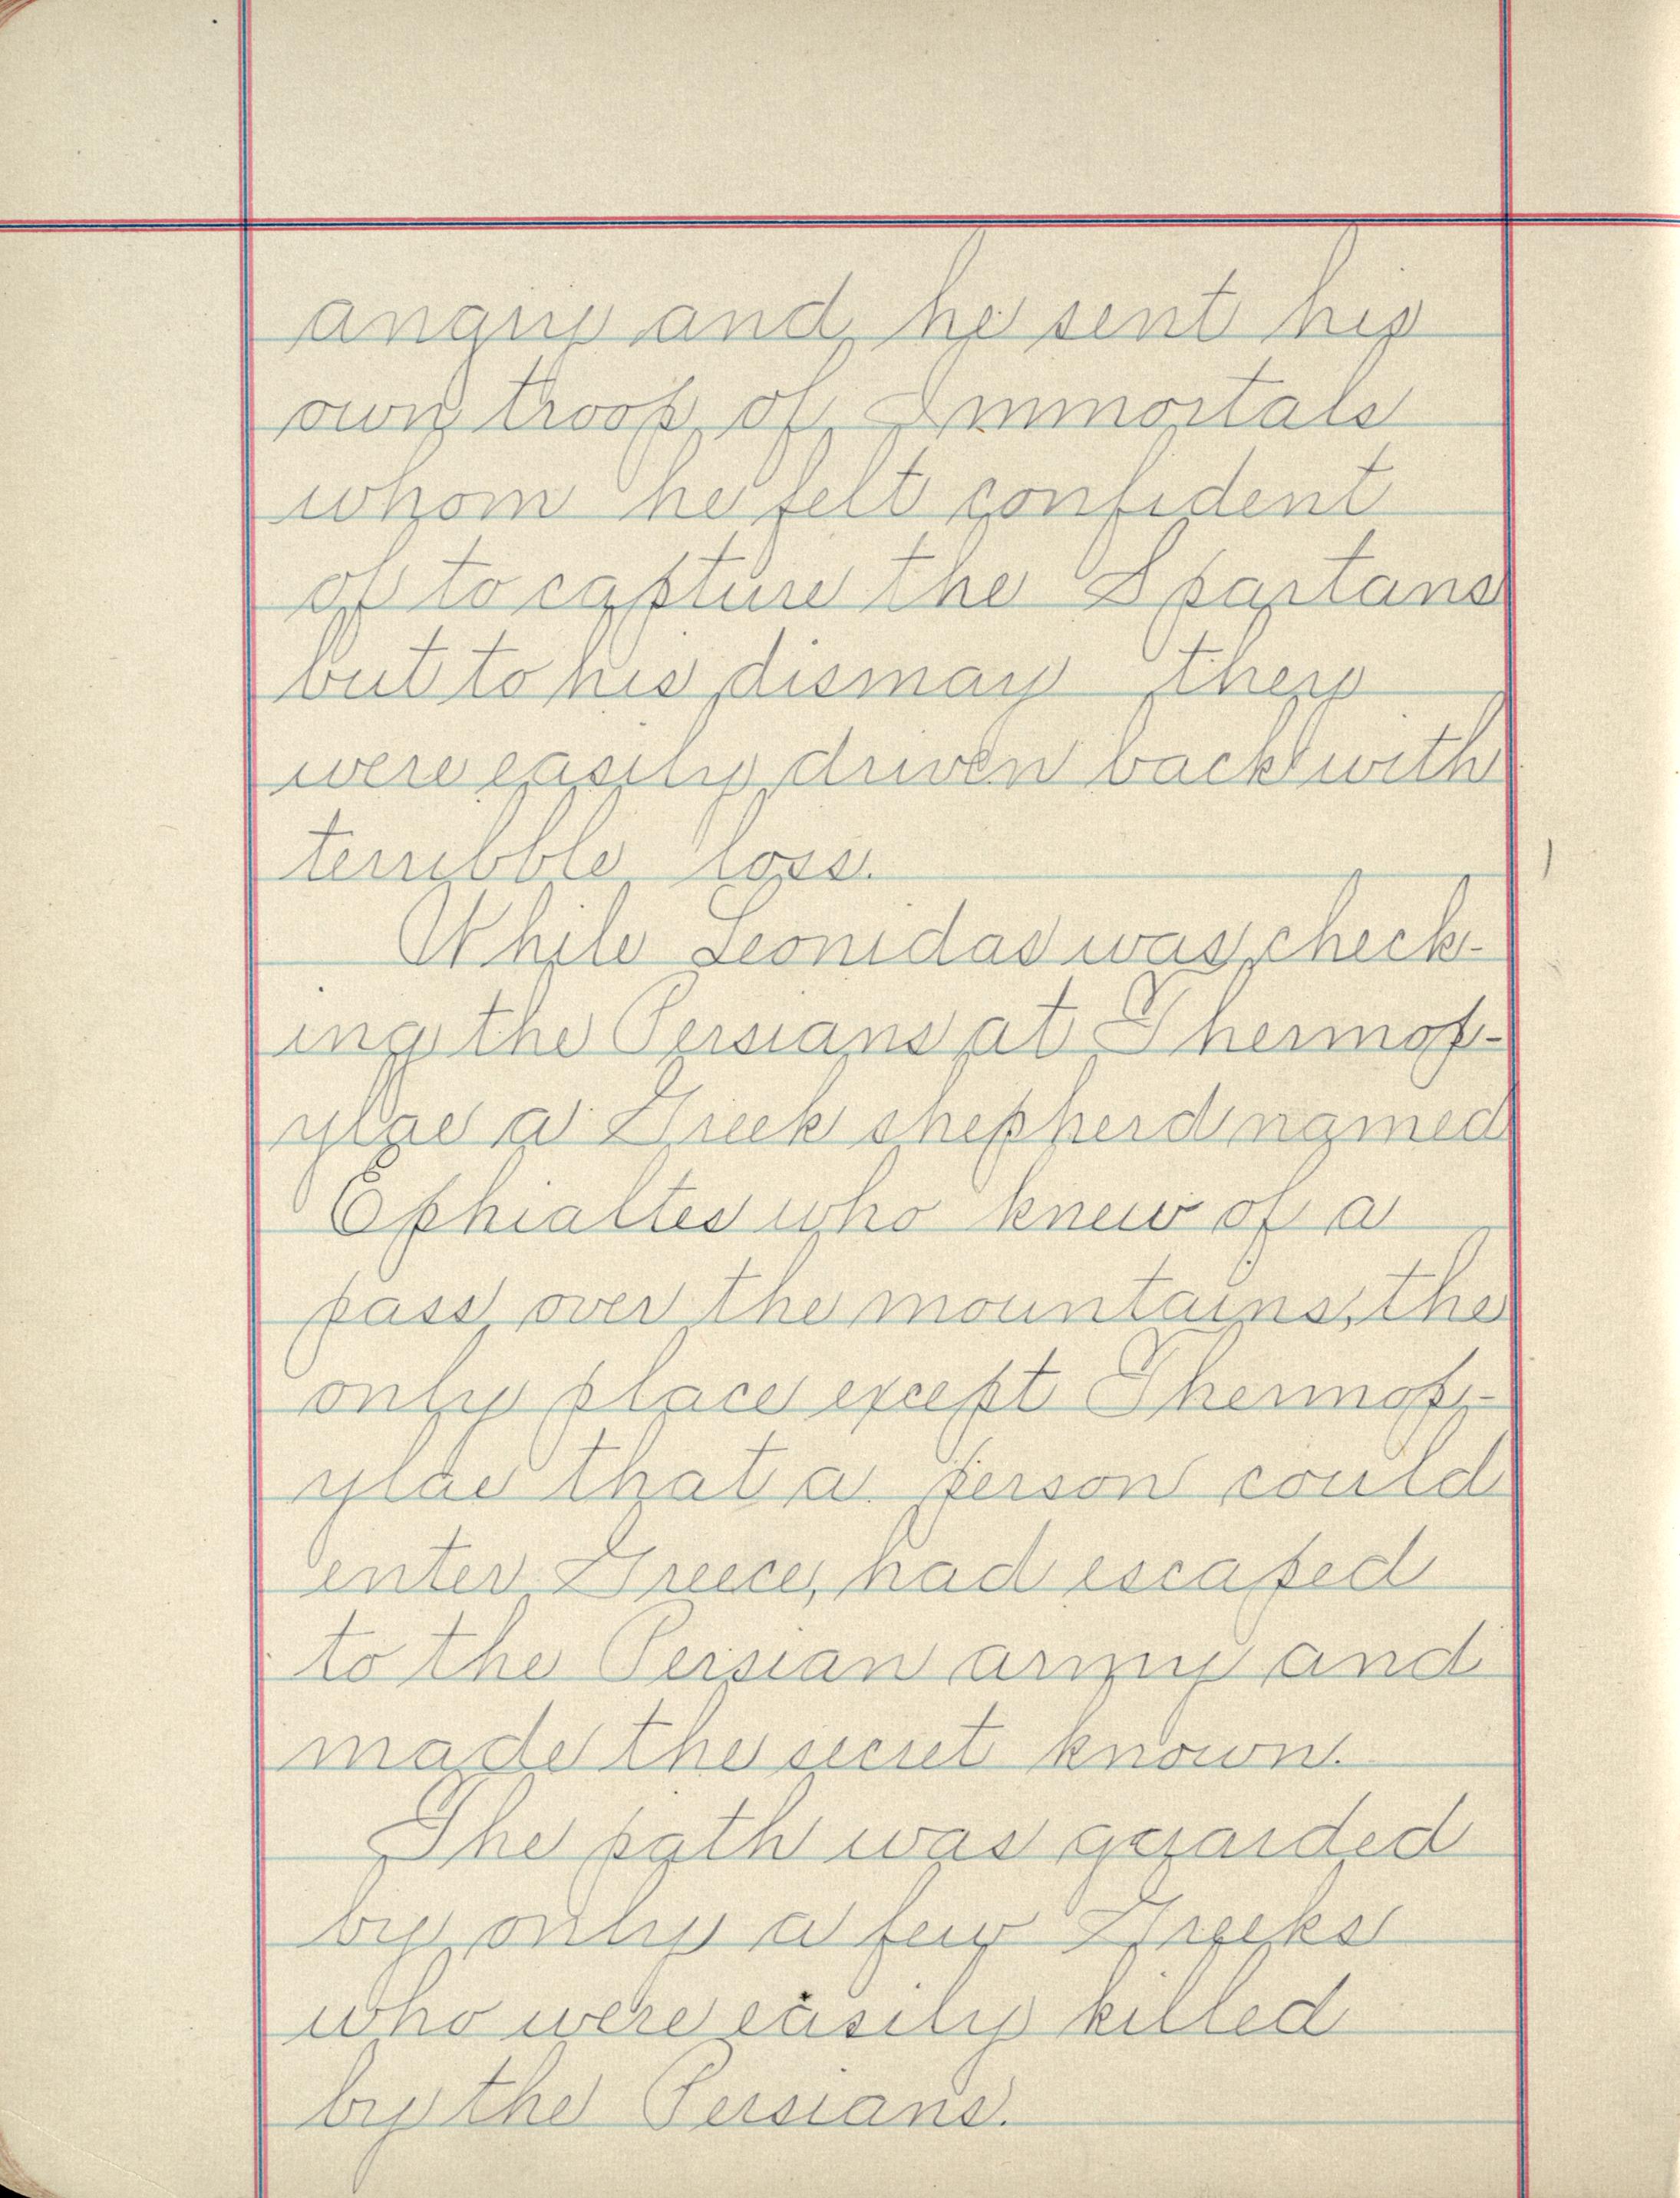 angry and he sent his
own troop of Immortals
whom he felt confident
of to capture the Spartans
but to his dismay they
were easily driven back with
terribble loss.
While Leonidas was check-
ing the Persians at Thermop-
ylae a Greek shepherd named
Ephialtes who knew of a
pass over the mountains, the
only place except Thermop-
ylae that a person could
enter Greece, had escaped
to the Persian army and
made the secret known.
The path was guarded
by only a few Greeks
who were easily killed
by the Persians.